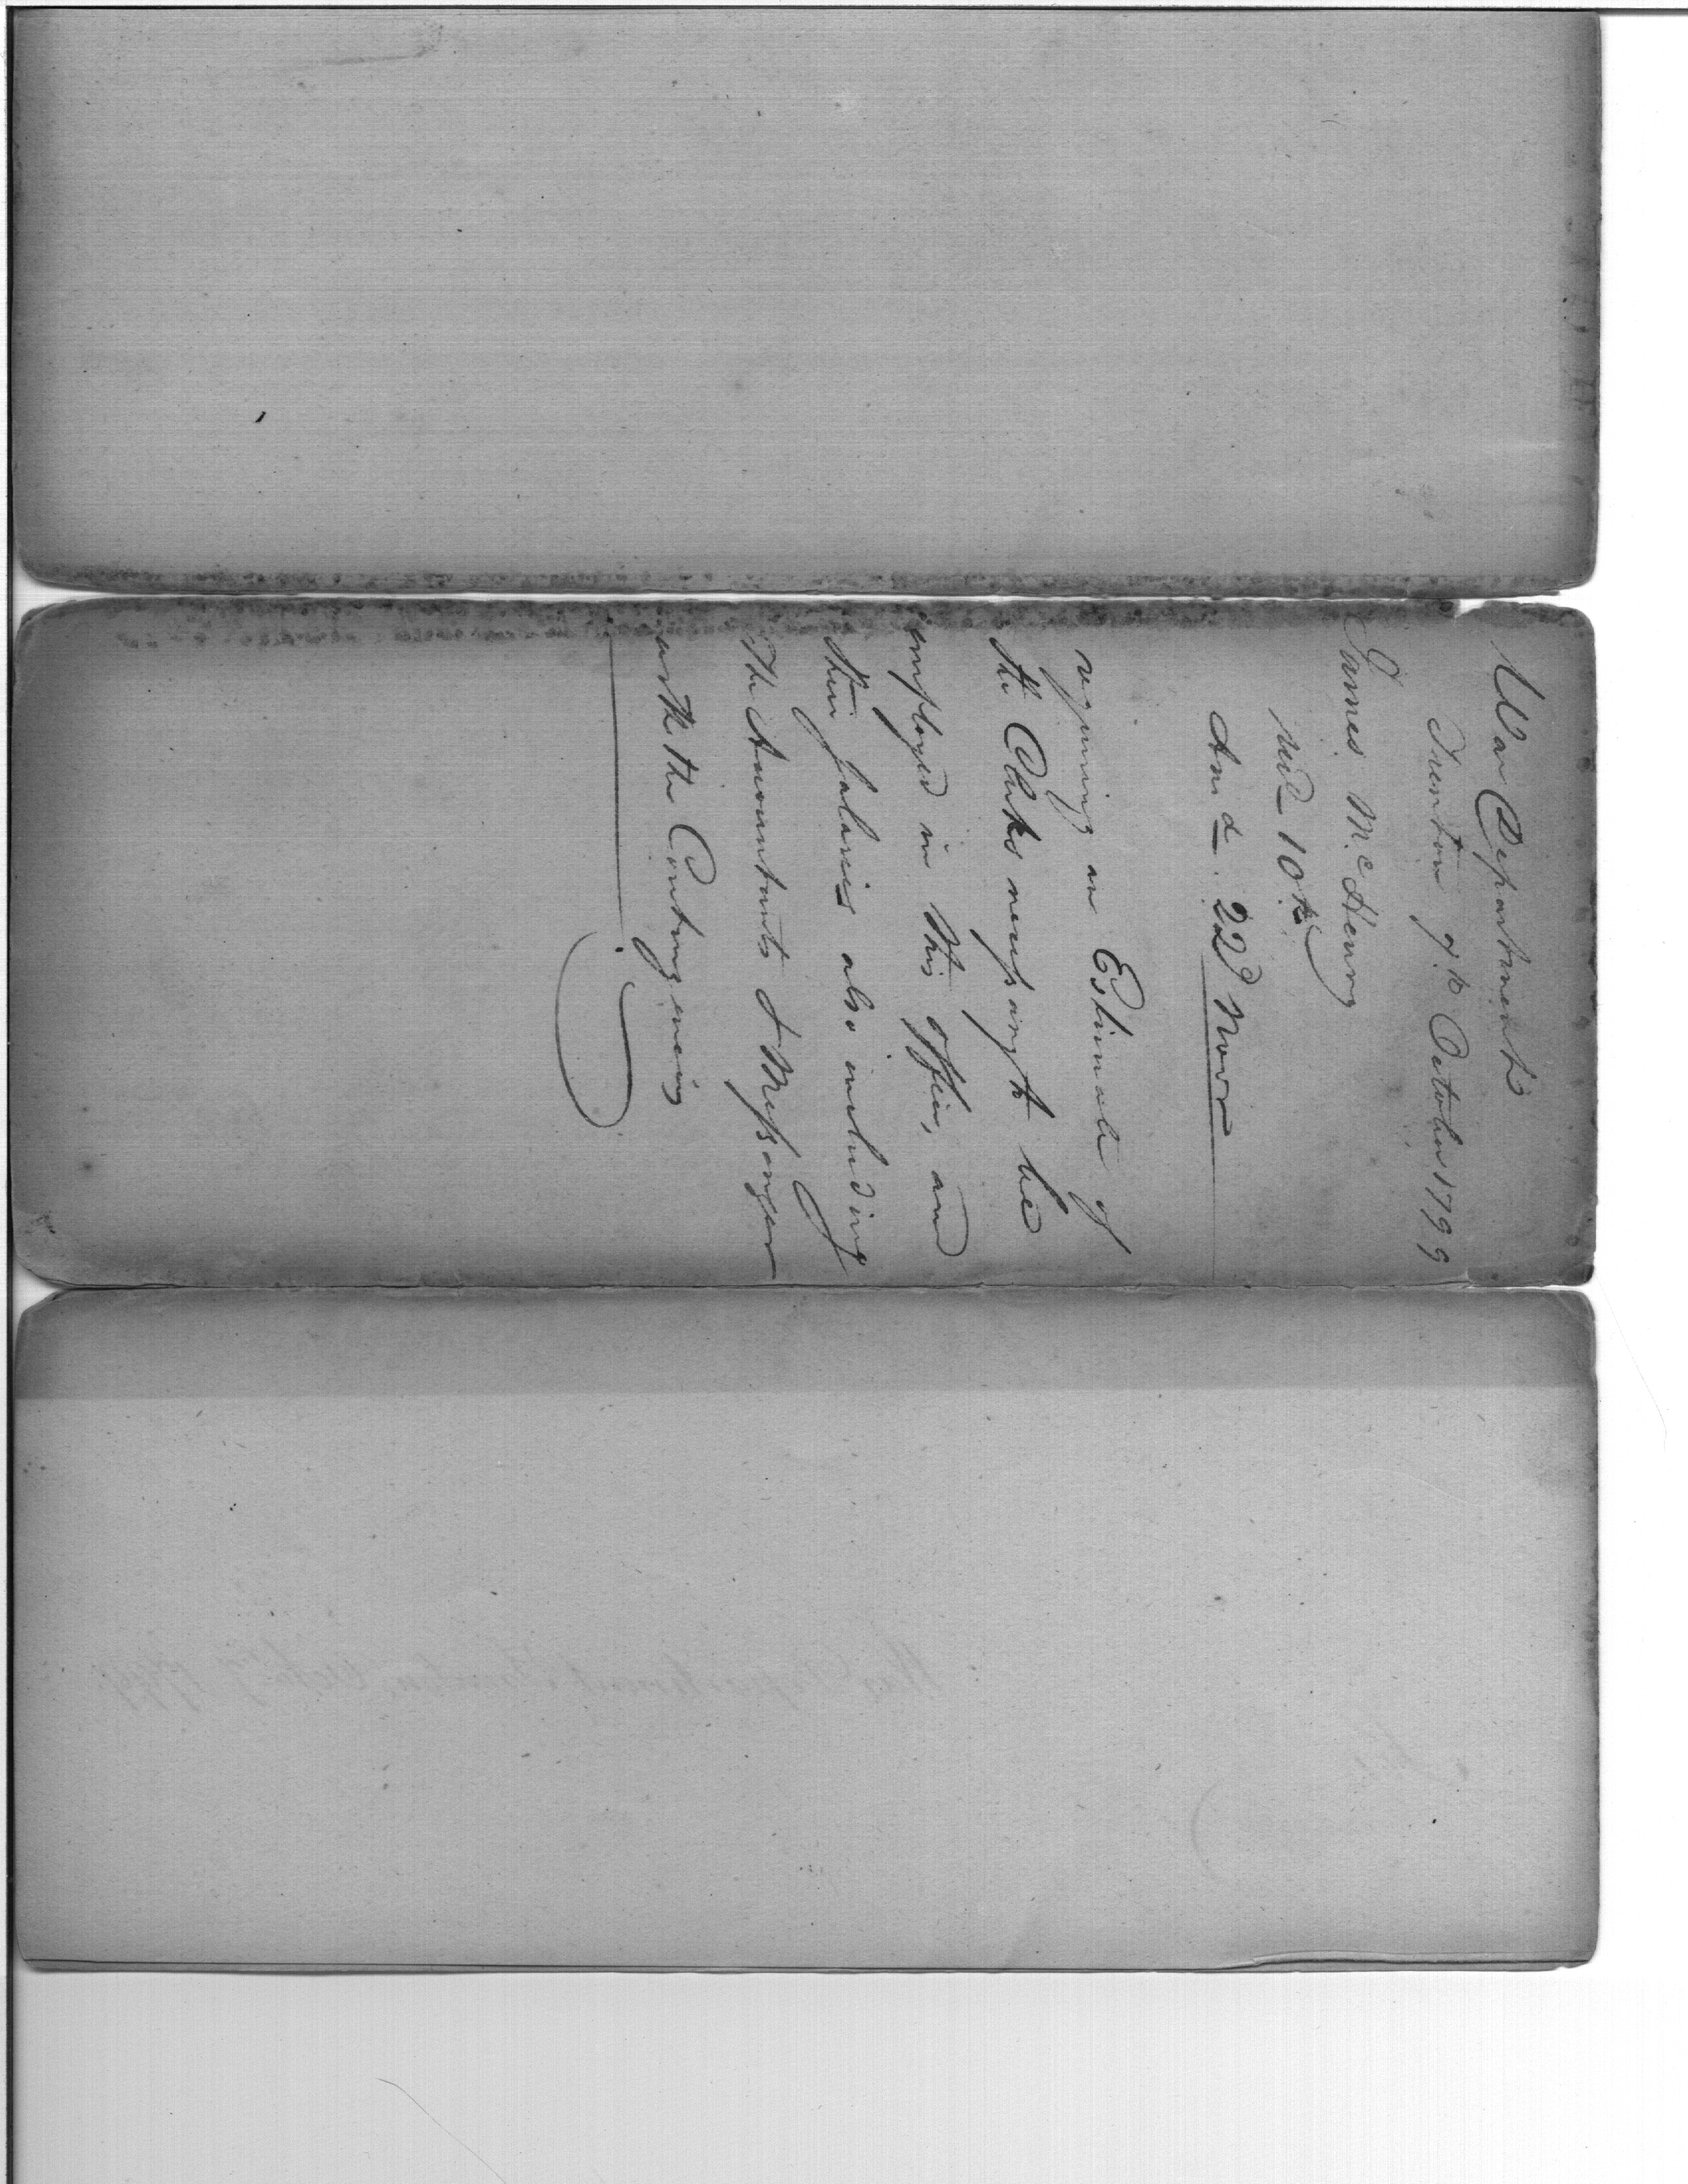 War Department
Trenton 9th October 1799
James McHenry
recd 10th
Ansd. 22d Novr
requiring an Estimate of
the Clerks necessary to be
employed in this office, and
their Salaries also including
the Accountants & Messenger
with the Contingencies